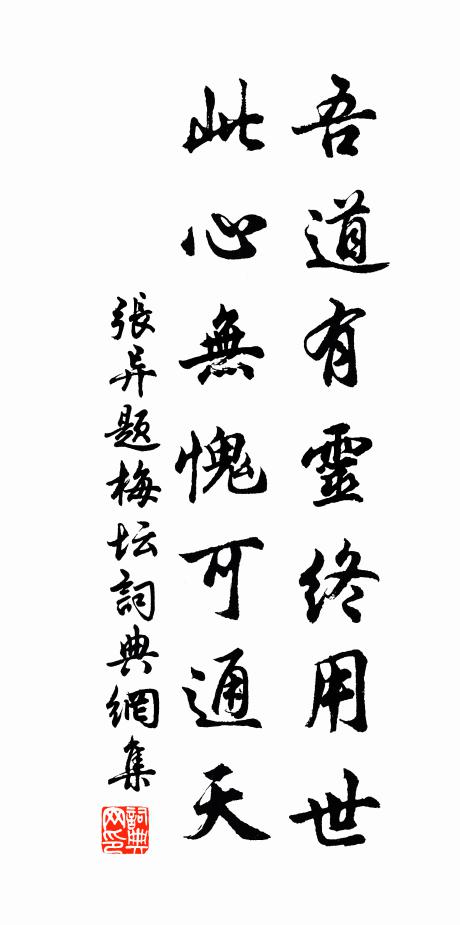 吾道有靈終用世
此心無愧可通天
張异題梅坛詞典網集
詞典网印